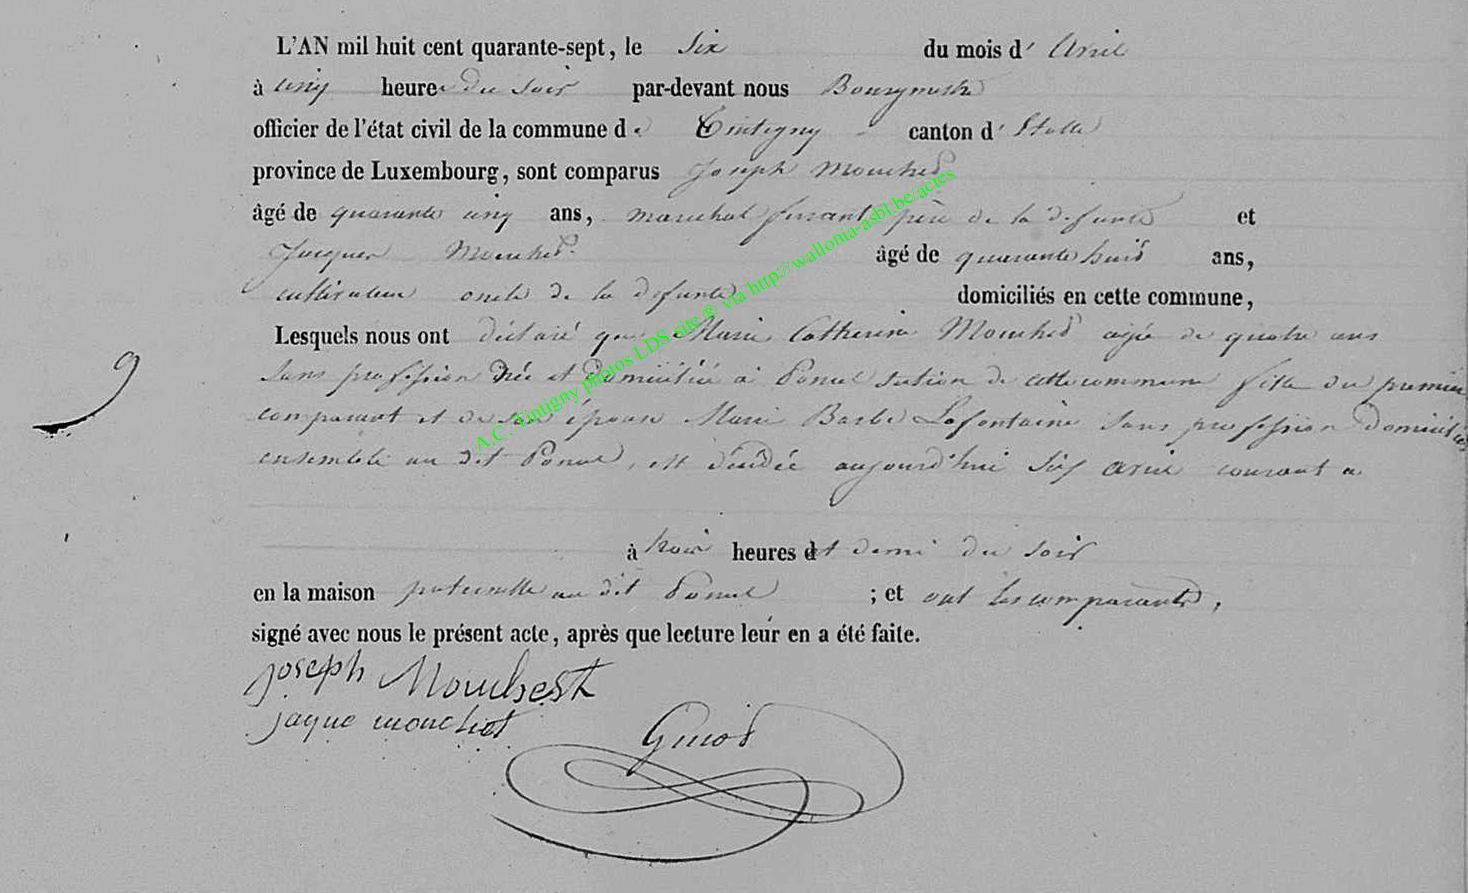 L'AN mil huit cent quarante-sept, le six du mois d' Avril
à cinq heures du soir par-devant nous Bourgmestre
officier de l'état civil de la commune de Tintigny canton d' Etalle
province de Luxembourg, sont comparus Joseph Mouchet
âgé de quarante cinq ans, marechal ferrant père de la defunte et
Jacques Mouchet âgé de quarante huit ans,
cultivateur oncle de la defunte domiciliés en cette commune,
Lesquels nous ont déclaré que Marie Catherine Mouchet agée de quatre ans
sans profession née et domiciliée à Ponsel section de cette commune fille du premier
comparant et de son épouse Marie Barbe Lafontaine sans profession domiciliés
ensemble au dit Ponsel, est décédée aujourd'hui six avril courant a
à trois heures et demi du soir
en la maison paternelle au dit Ponsel ; et ont les comparants,
signé avec nous le présent acte, après que lecture leur en a été faite.
joseph Mouchest
jaque mouchet
Guiot
9
A.C. Tintigny photos LDS sue @ via http://wallonia-asbl.be/actes